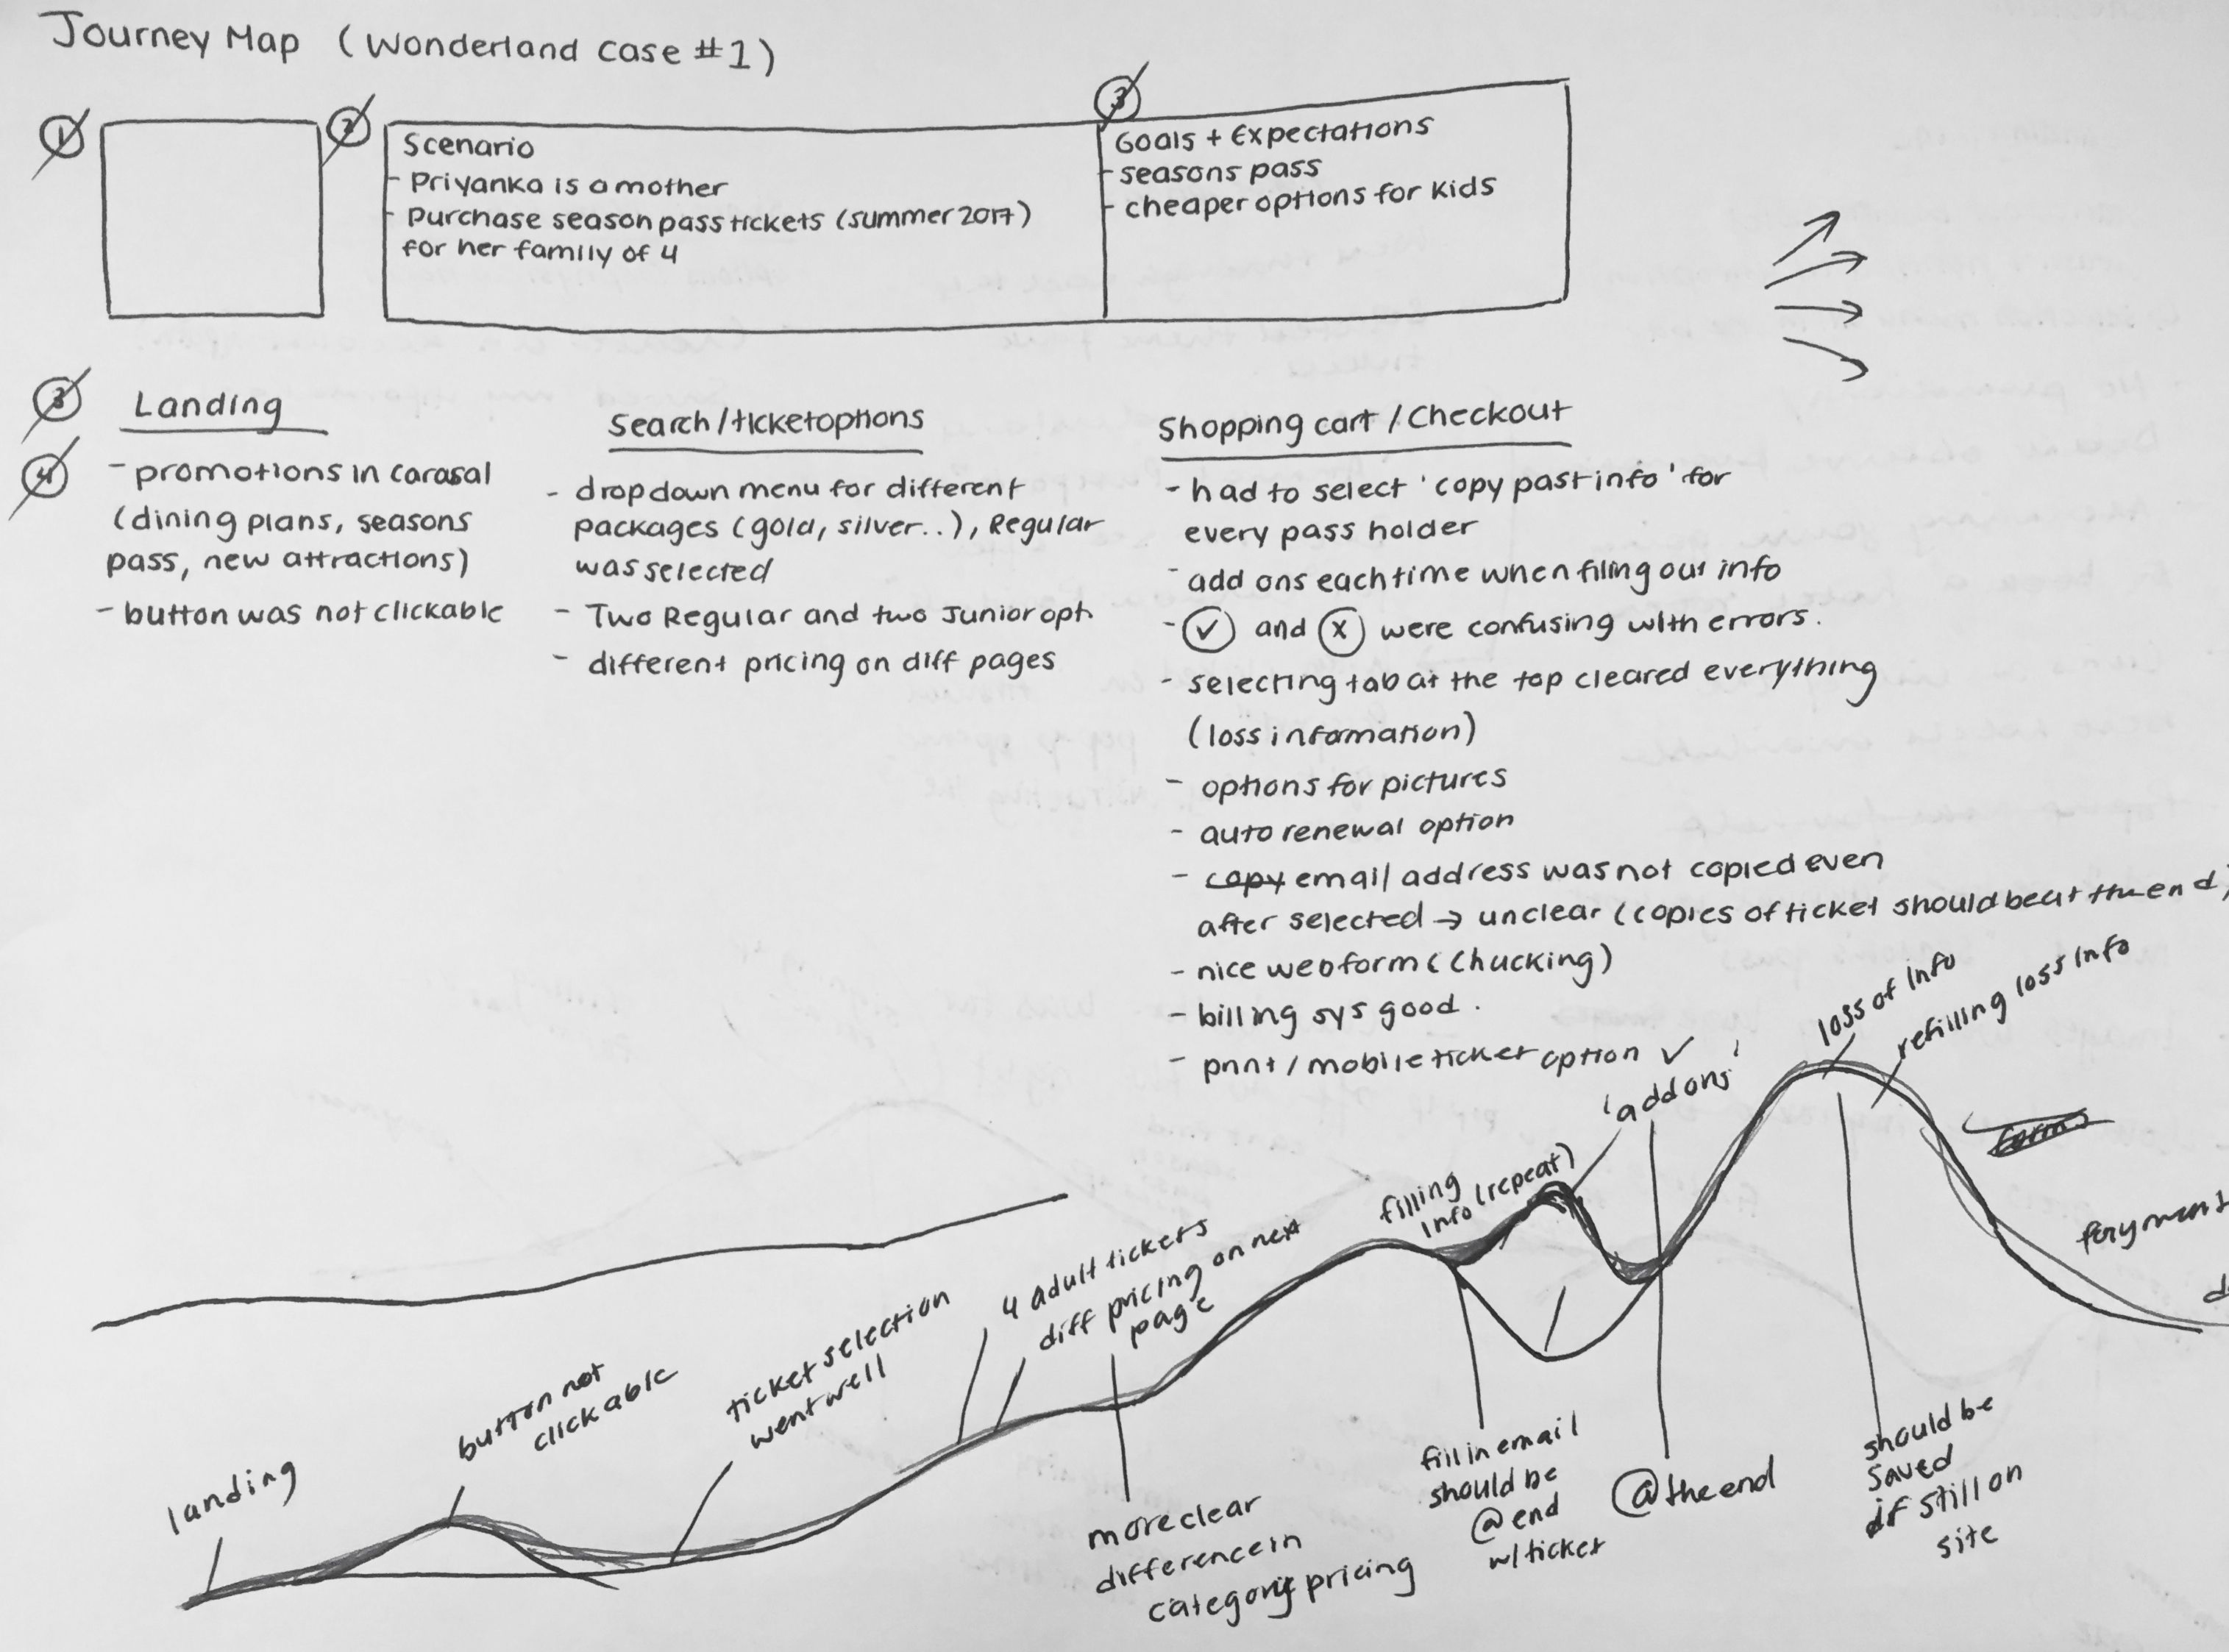 Journey Map (Wonderland case #1)
1
2
Scenario
- Priyanka is a mother
- Purchase season pass tickets (summer 2017)
for her family of 4
3
Goals + Expectations
- seasons pass
- cheaper options for kids
3
Landing
4
- promotions in carasal
(dining plans, seasons
pass, new attractions)
- button was not clickable
Search/ticketoptions
- dropdown menu for different
packages (gold, silver..), Regular
was selected
- Two Regular and two Junior opt.
- different pricing on diff pages
Shopping cart / Checkout
- had to select 'copy past info' for
every pass holder
- add ons each time when filing out info
- ✓ and x were confusing with errors.
- selecting tab at the top cleared everything
(loss information)
- options for pictures
- auto renewal option
- copy email address was not copied even
after selected → unclear (copies of ticket should be at the end)
- nice webform (Chucking)
- billing sys good.
- print / mobile ticket option ✓
landing
button not
clickable
ticket selection
went well
4 adult tickets
diff pricing on next
page
filling
info (repeat)
'add ons'
loss of info
refilling loss info
forms
more clear
difference in
category pricing
fill in email
should be
@ end
w/ ticket
@ the end
should be
saved
if still on
site